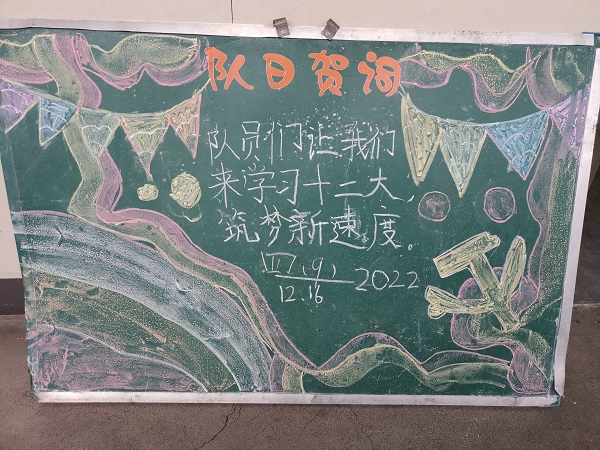 队日贺词
队员们让我们
来学习十二大，
筑梦新速度。
四(9)
12.16 2022